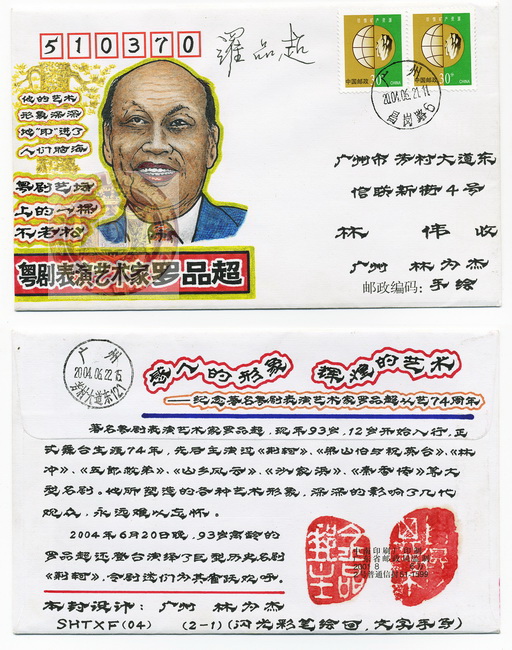 510370
罗品超
中国邮政 30分 CHINA
中国邮政 30分 CHINA
广州
2004.06.21.11
昌岗路6
他的艺术
形象深深
地“印”进了
人们脑海
粤剧艺坛
上的一棵
不老松
粤剧表演艺术家罗品超
广州市芳村大道东
信联新街4号
林 伟 收
广州 林为杰
邮政编码：手绘
广州
2004.06.22.15
芳村大道东(2)
感人的形象 辉煌的艺术
——纪念著名粤剧表演艺术家罗品超从艺74周年
著名粤剧表演艺术家罗品超，现年93岁，12岁开始入行，正
式舞台生涯74年，先后主演过《荆轲》、《梁山伯与祝英台》、《林
冲》、《五郎救弟》、《山乡风云》、《沙家浜》、《秦香莲》等大
型名剧。他所塑造的各种艺术形象，深深的影响了几代
观众，永远难以忘怀。
2004年6月20日晚，93岁高龄的
罗品超还登台演绎了巨型历史名剧
《荆轲》，令剧迷们为其雀跃欢呼。
本封设计：广州 林为杰
SHTXF(04) (2-1) (闪光彩笔绘画，文字手写)